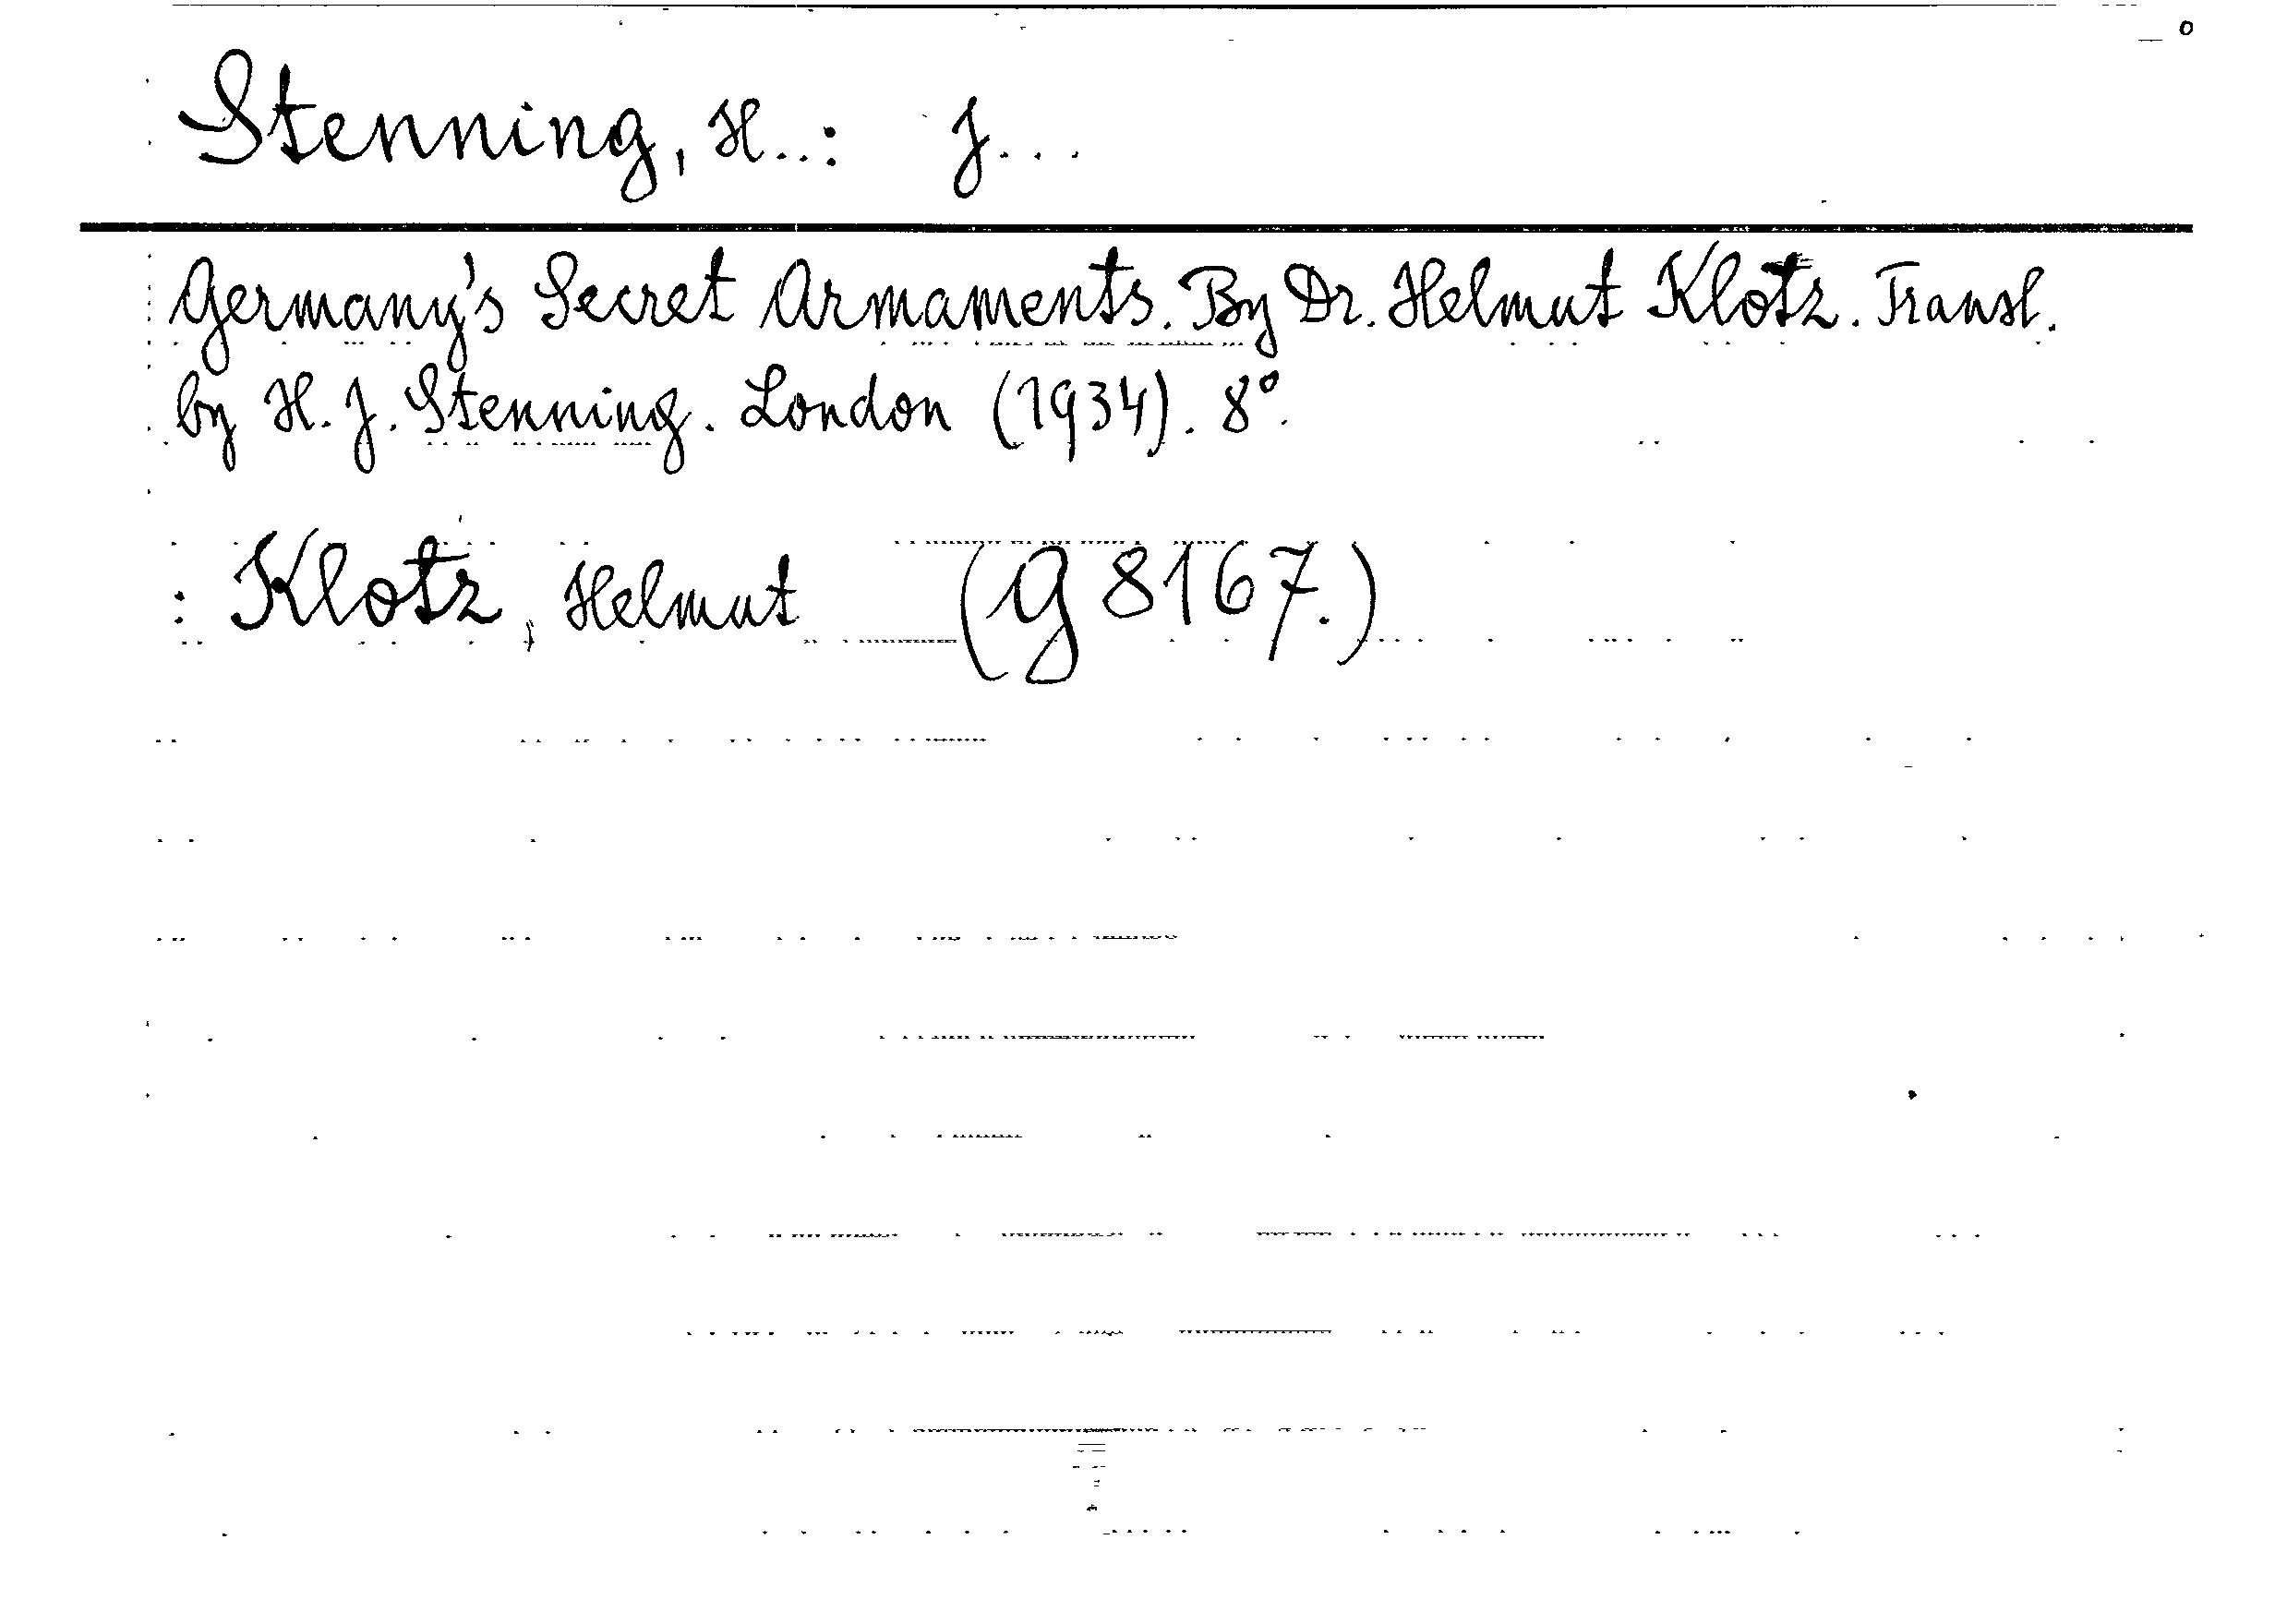 Stenning, H..: J...
Germany's Secret Armaments. By Dr. Helmut Klotz. Transl.
by H. J. Stenning. London (1934). 8°.
: Klotz, Helmut (G 8167.)